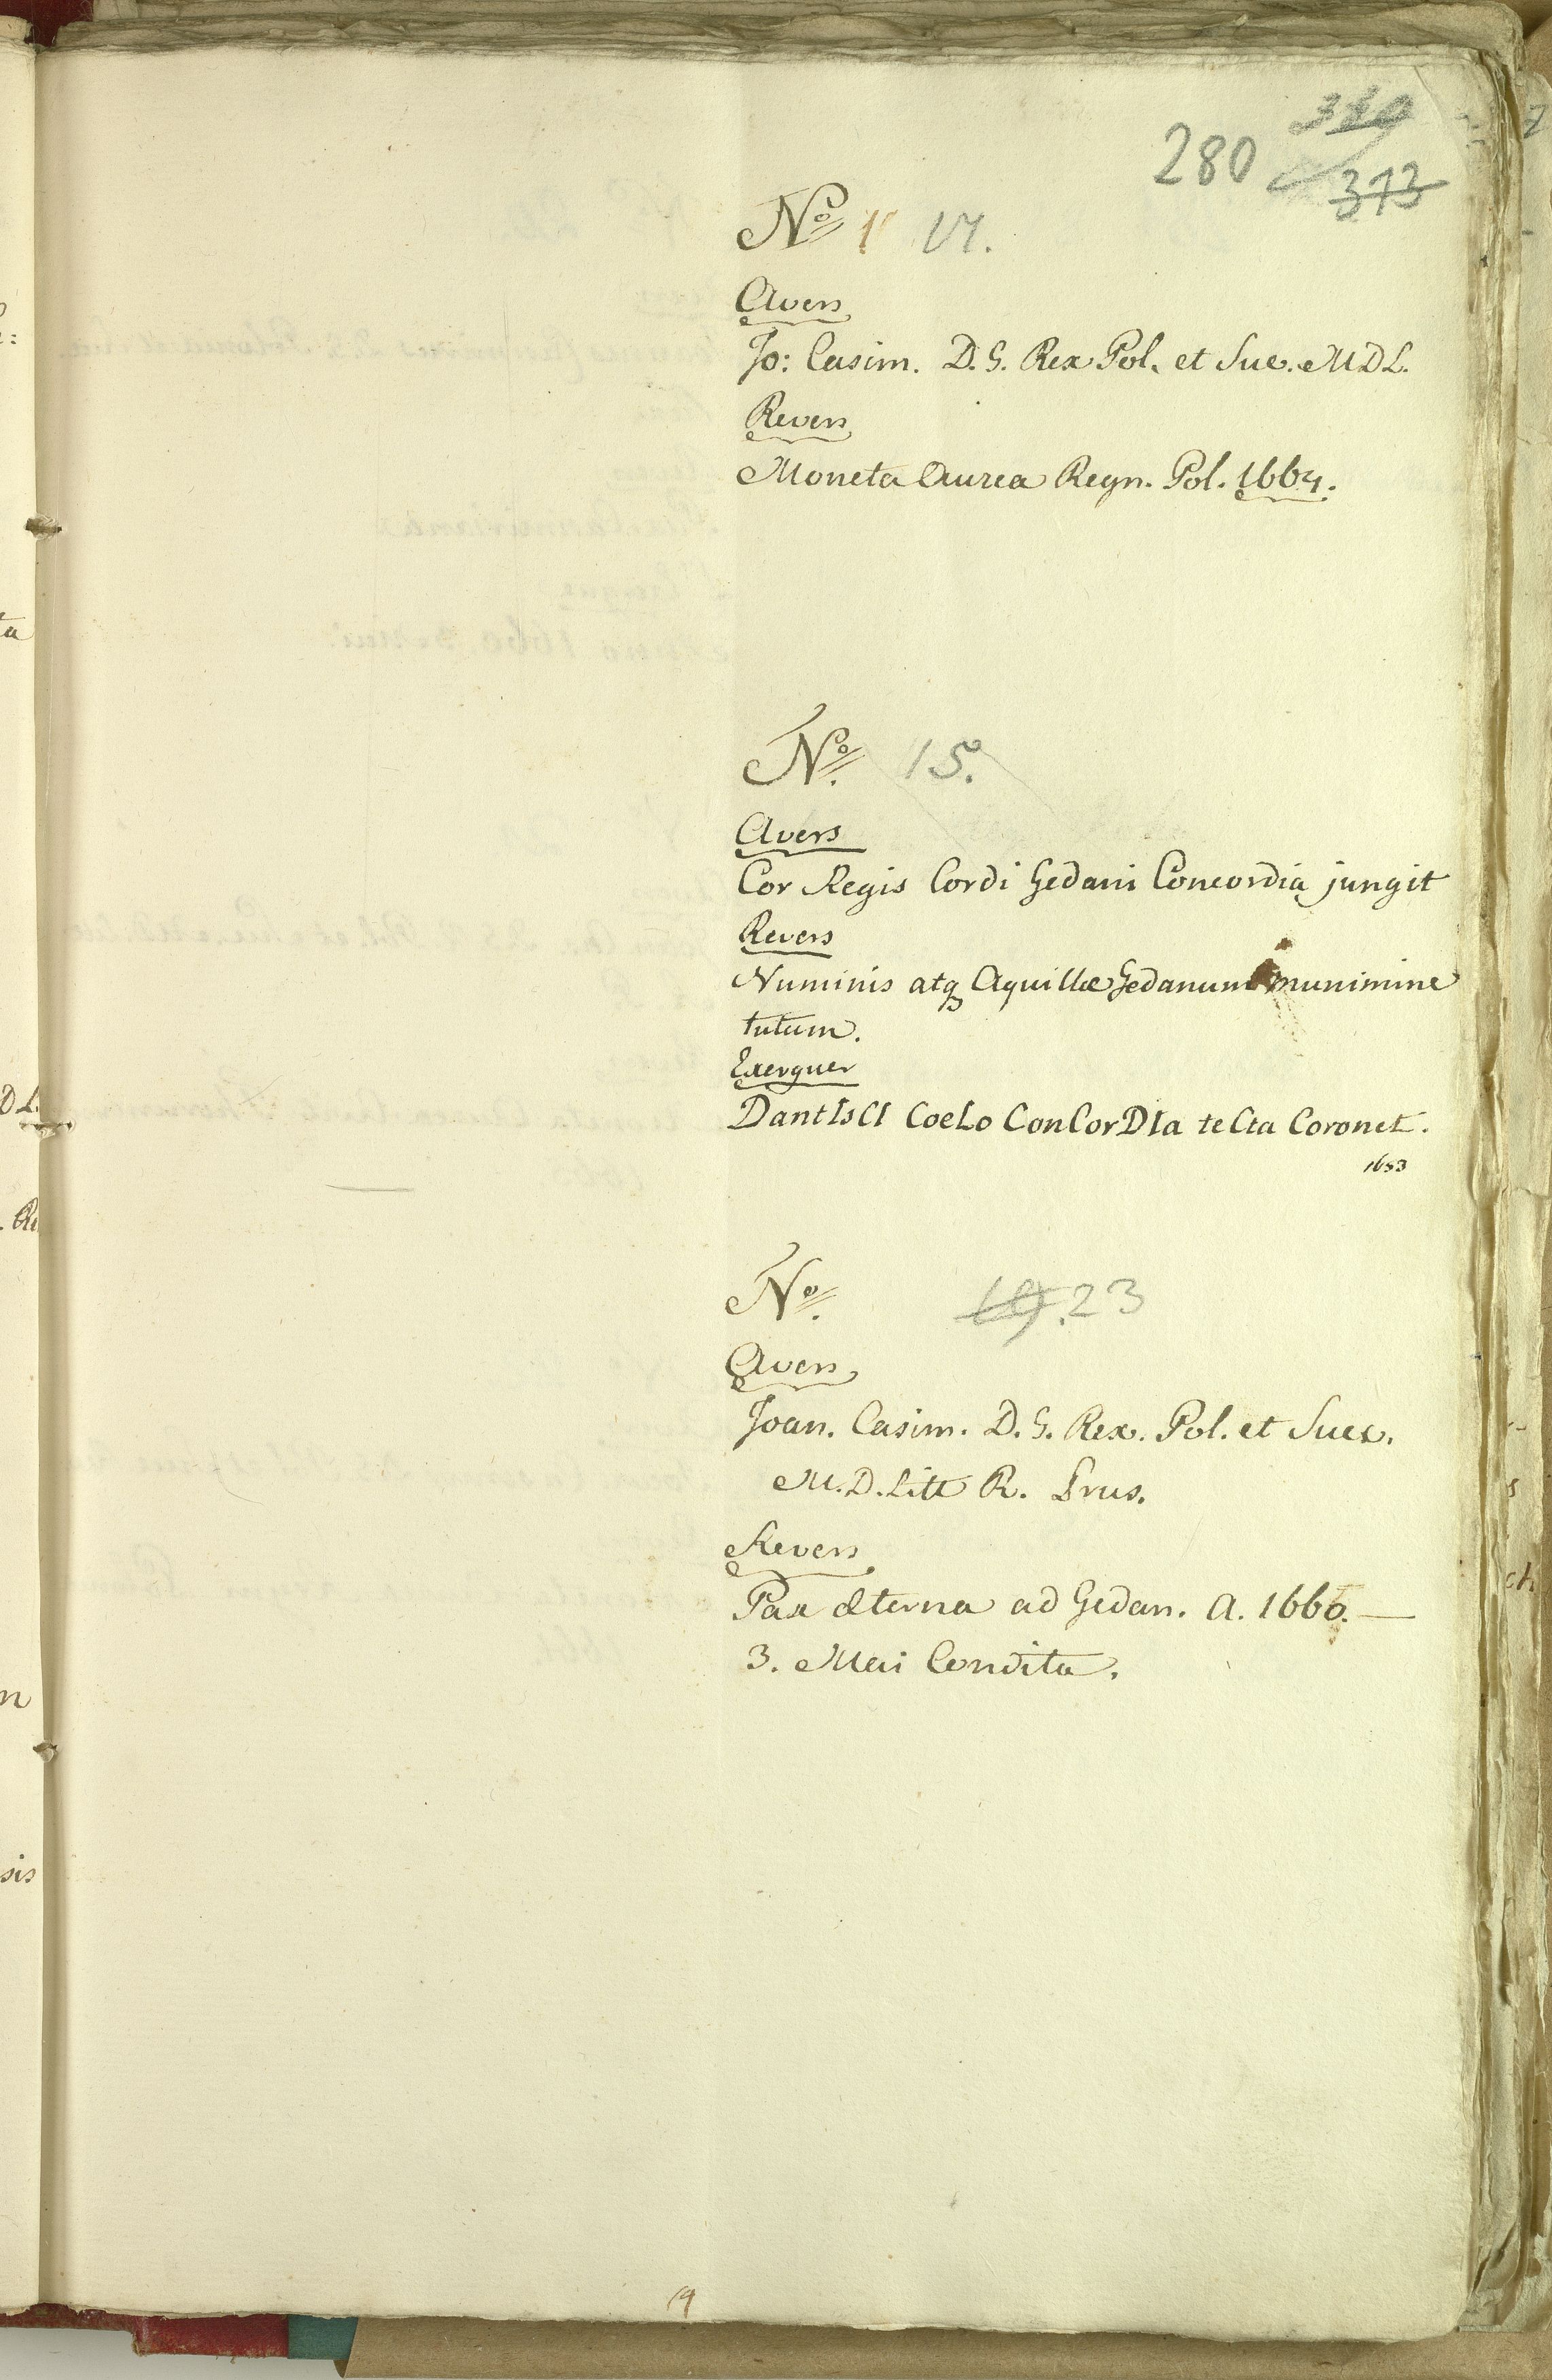 280
373
No 1 17.
Avers
Jo: Casim. D. G. Rex Pol. et Sue. MDL.
Revers
Moneta Aurea Regn. Pol. 1664.
No. 15.
Avers
Cor Regis Cordi Gedani Concordia jungit
Revers
Numinis atq Aquillæ Gedanum munimine
tutum.
Exerguer
DantIsCI CoeLo ConCorDIa teCta Coronet.
1653
No. 19. 23
Avers
Joan. Casim. D. G. Rex. Pol. et Suec.
M. D. Litt R. Prus.
Revers
Pax æterna ad Gedan. A. 1660. —
3. Mai Condita.
19